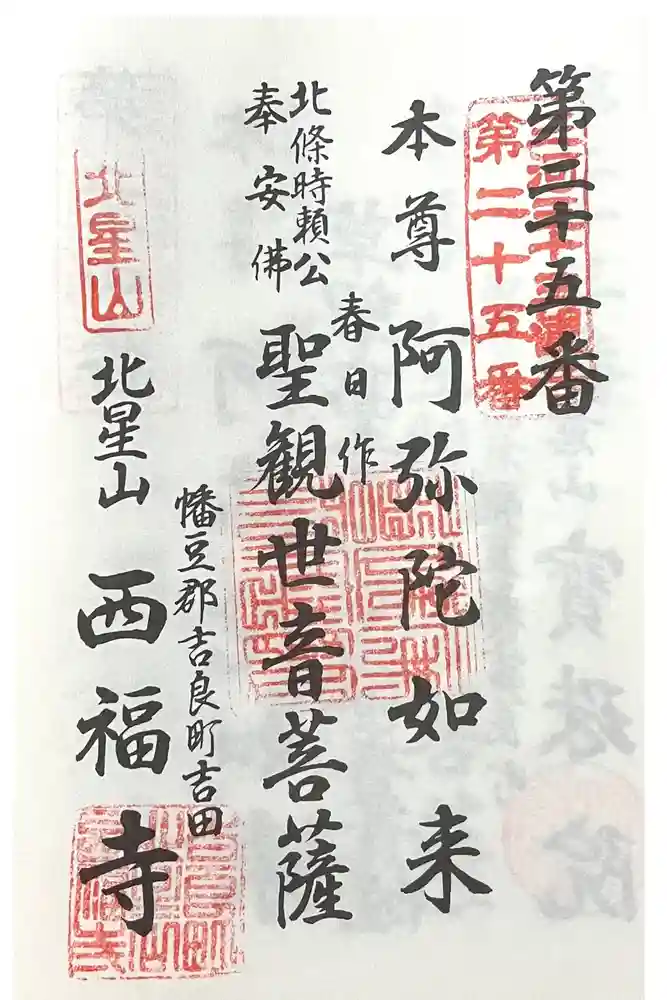 第二十五番
第二十五番
本尊 阿弥陀如来
春日作
北條時頼公
奉安佛
聖観世音菩薩
幡豆郡吉良町吉田
北星山
北星山 西福寺